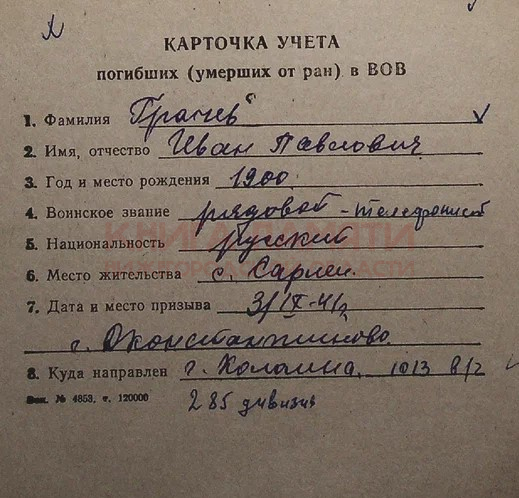 КАРТОЧКА УЧЕТА
погибших (умерших от ран) в ВОВ
1. Фамилия Грачев
2. Имя, отчество Иван Павлович
3. Год и место рождения 1900
4. Воинское звание рядовой - телефонист
5. Национальность русский
КНИГА ПАМЯТИ
НИЖЕГОРОДСКОЙ ОБЛАСТИ
6. Место жительства с. Сарлеи
7. Дата и место призыва 3/IX-41г
г. Дконстантиново
8. Куда направлен г. Коломна, 1013 в/ч
Зак. № 4853, т. 120000
285 дивизия